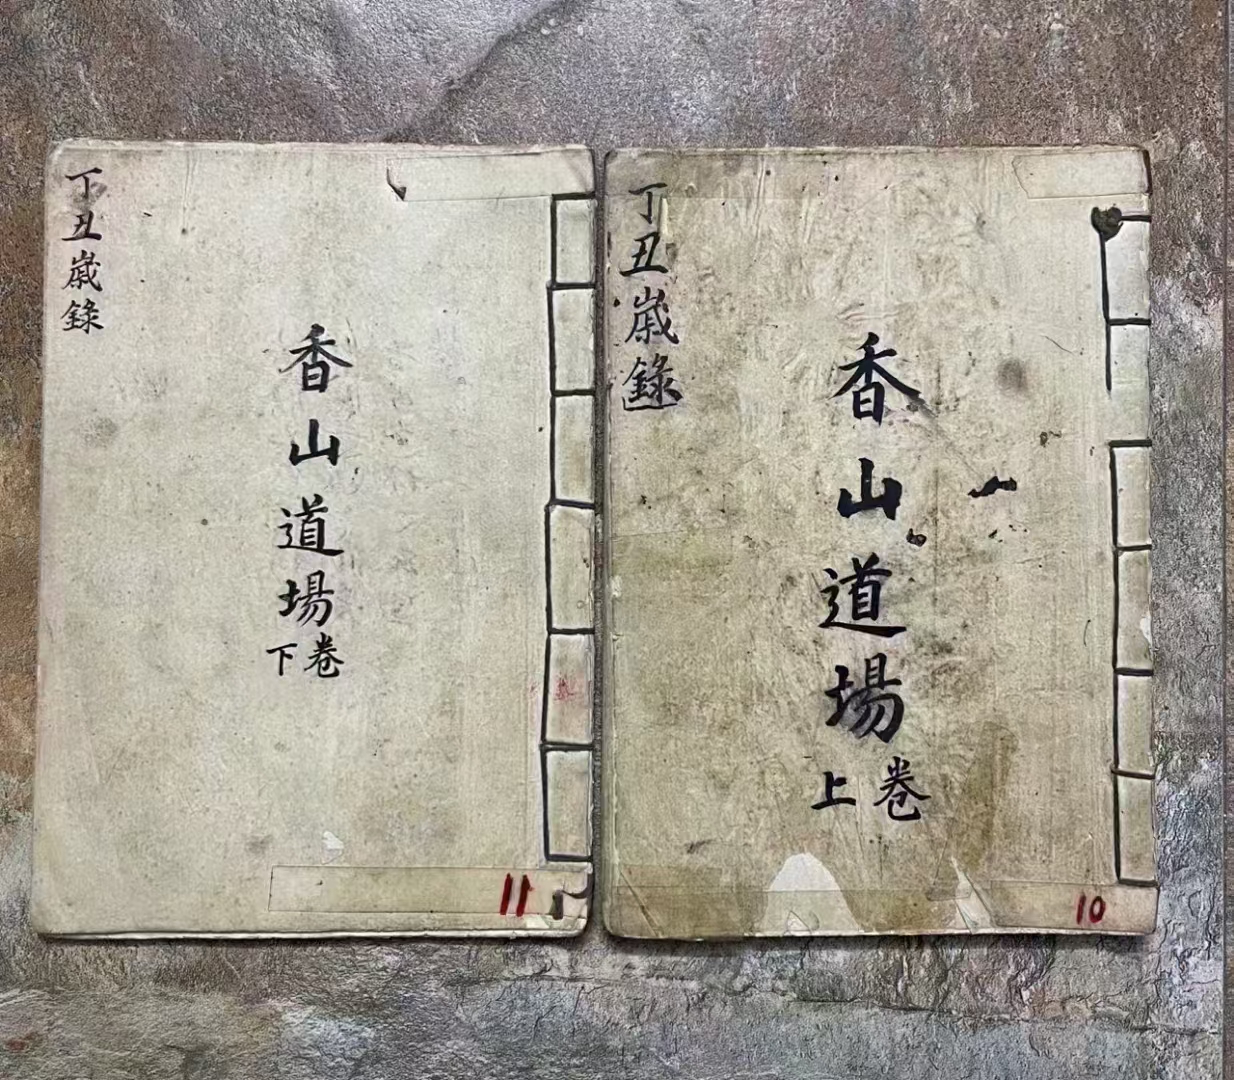 丁丑歲錄
香山道場
卷上
10
丁丑歲錄
香山道場
卷下
11